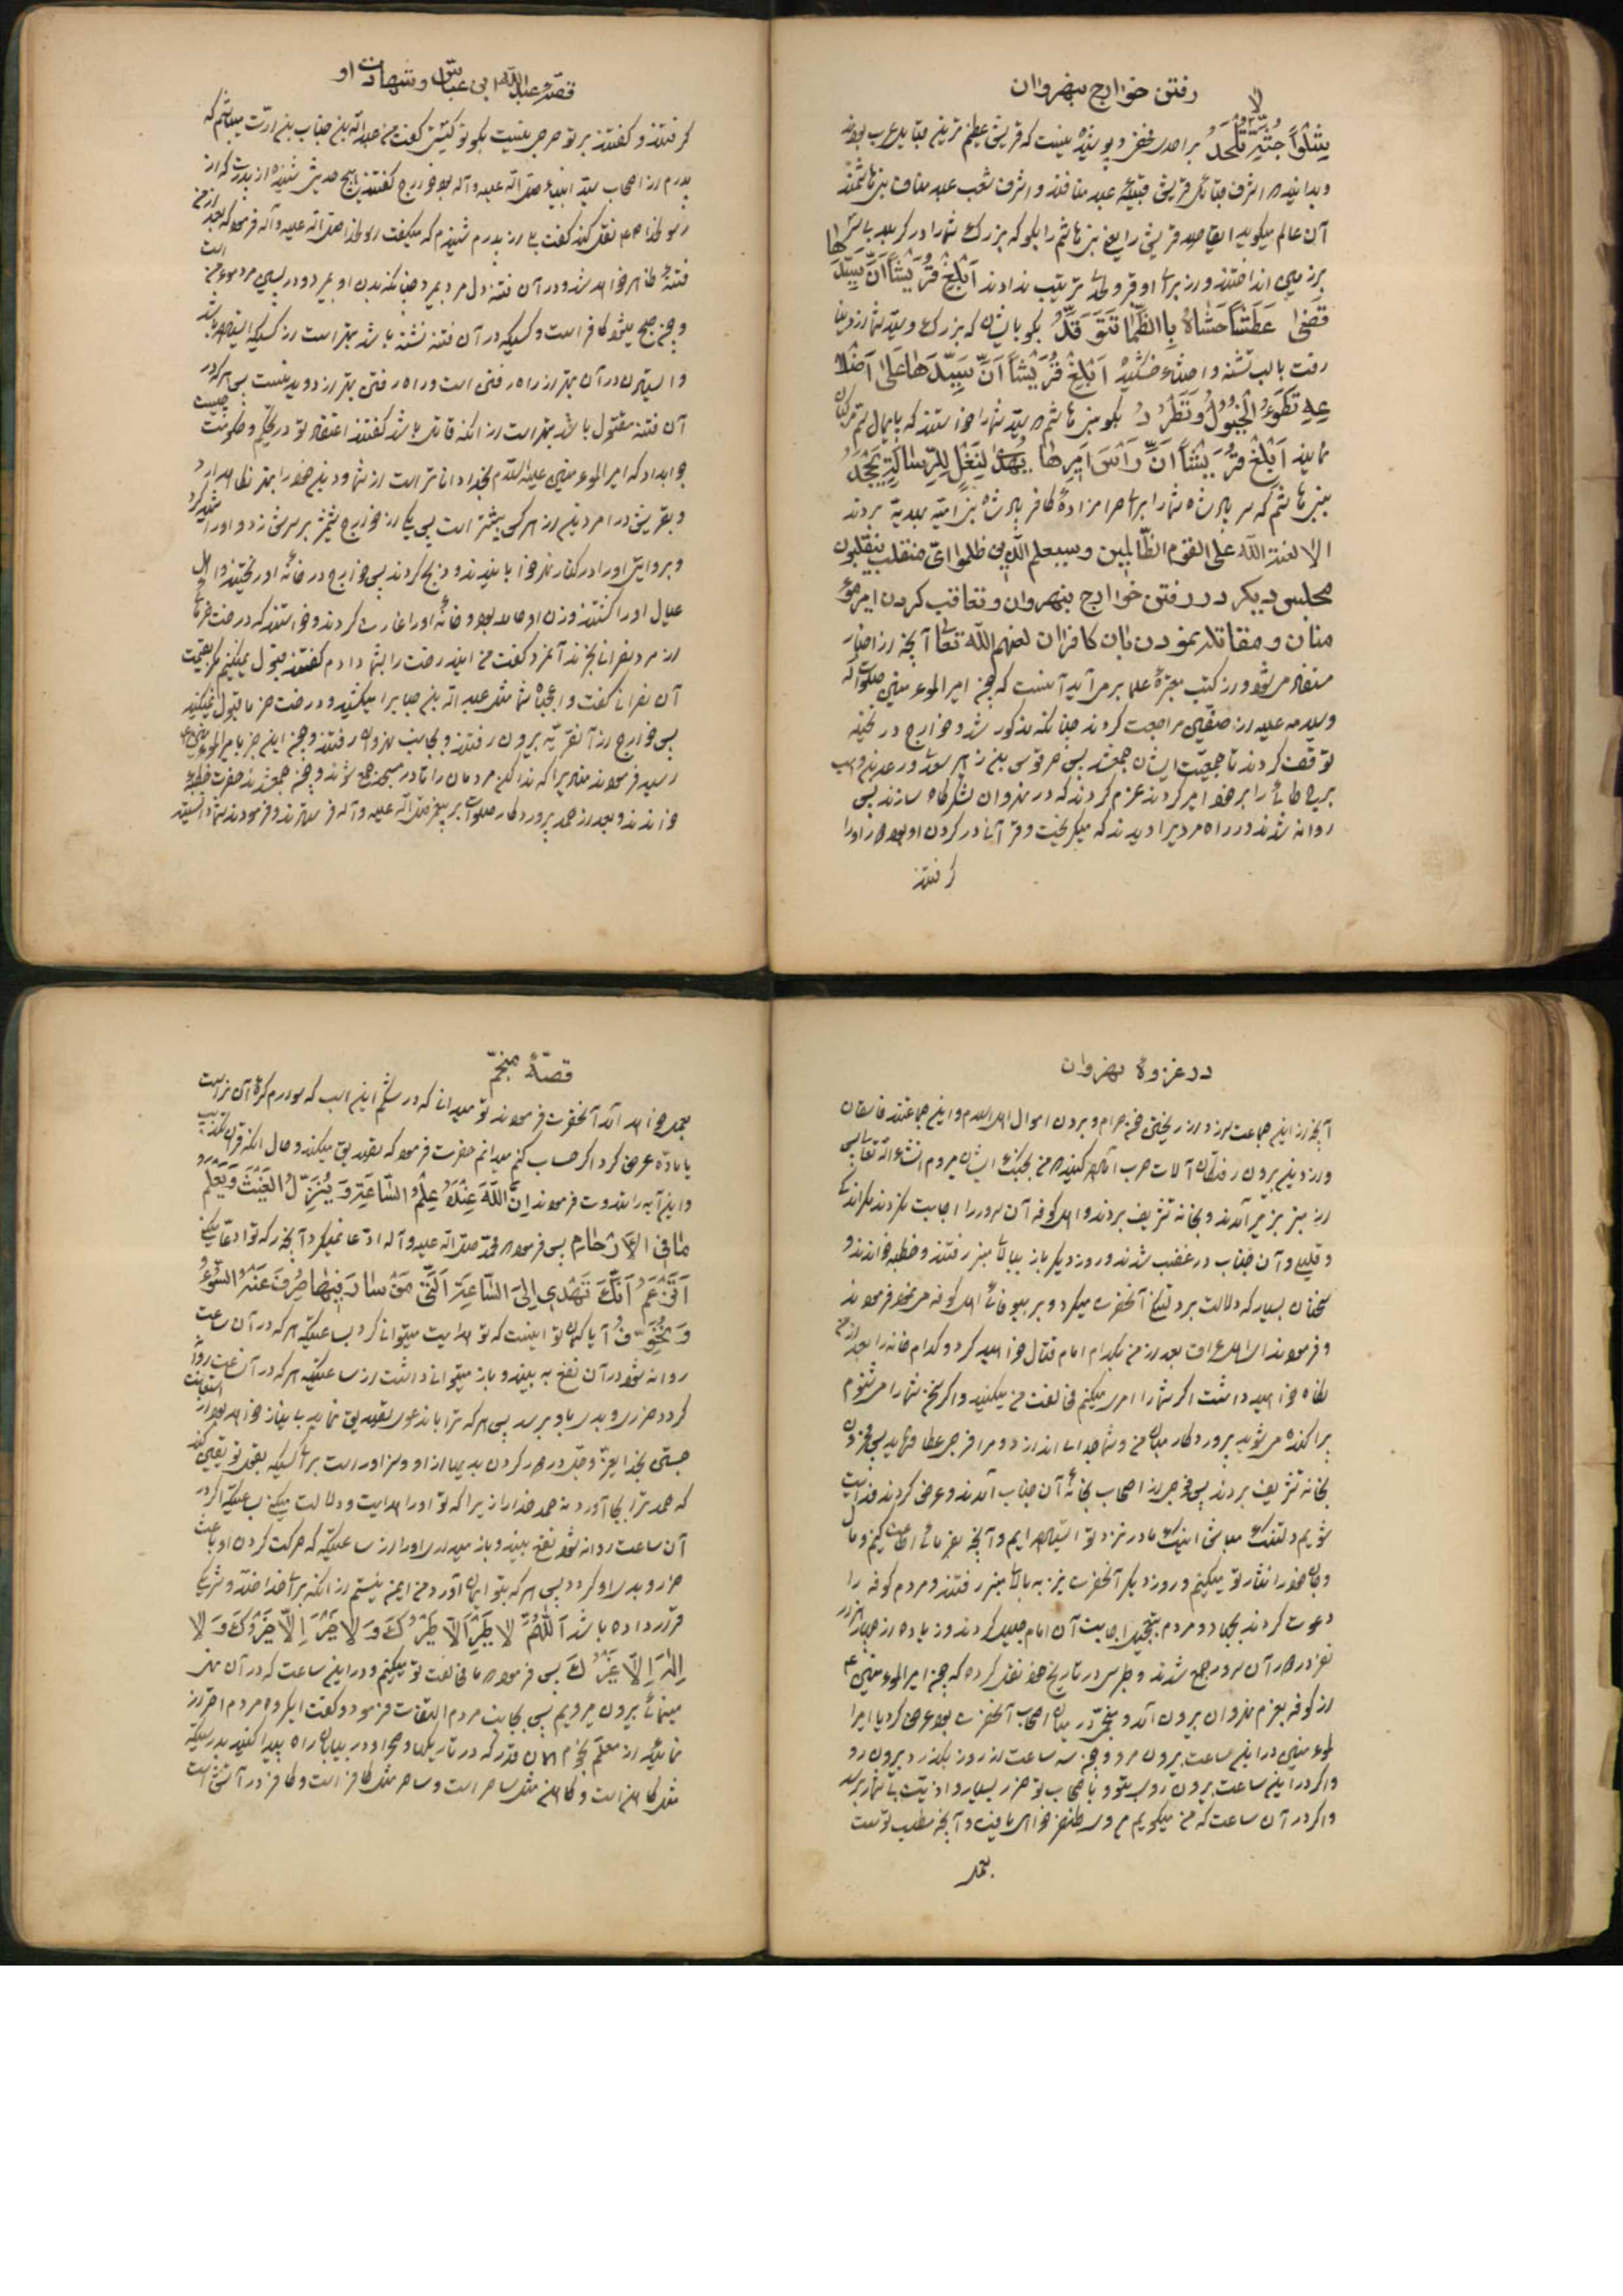 رفتن خوارج بنهروان
آن عالم میکوید ایقاصد قریش را یعنی بنی هاشم را بکو که بزرک شما را در کربلا
برزمین انداختند و از برای او قبر و لحد ترتیب ندادند اَبْلِغْ قُرَیْشًا اَنَّ سَیِّدَهَا
قَضٰی عَطَشًا حَشٰاهُ بِالظَّمٰا تَتَوَقَّدُ بکو بایشان که بزرک و سید شما از دنیا
رفت با لب تشنه و احشاء خشکیده اَبْلِغْ قُرَیْشًا اَنَّ سَیِّدَهٰا عَلٰی اَضْلا
عِهِ تَطَوُّ الْخُیُولُ وَتَطْرُدُ بکو ببنی هاشم که سید شما را خواستند که پایمال سم مرکبان
نمایند اَبْلِغْ قُرَیْشًا اَنَّ رَأْسَ اَمِیرِهٰا
ببنی هاشم که سر پادشاه شما را برای حرامزادهٔ کافر پادشاه بنی امیه بهدیه بردند
الا لعنة الله علی القوم الظّالمین وسیعلم الّذین ظلموا ایّ منقلب ینقلبون
مجلس دیکر در رفتن خوارج بنهروان وتعاقب کردن امیر مؤ
منان و مقاتله نمودن بان کافران لعنهم الله تعالی آنچه از اخبار
مستفاد میشود و از کتب معتبرهٔ علما برمی آید آنست که چون امیر المؤمنین صلوات الله
وسلامه علیه از صفین مراجعت کردند چنانکه مذکور شد و خوارج در نخیله
توقف کردند تا جمعیت ایشان جمع شد پس حرقوص بن زهیر سعدی و عبد بن وهب
را بر خود امیر کردند عزم کردند که در نهروان لشکرگاه سازند پس
روانه شدند در راه مردیرا دیدند که میکریخت و قرآنی در کردن او بود او را
کرفتند
قصّهٔ عبدالله ابن عبّاس وشهادت او
کرفتند و کفتند بر تو حرجی نیست بکو تو کیستی کفت من عبدالله بن خباب بن ارت میباشم که
پدرم از اصحاب سید انبیاء صلی الله علیه و آله بود خوارج کفتند هیچ حدیثی شنیدهٔ از پدرت که از
رسولخدا نقل کند کفت بلی از پدرم شنیدم که میکفت رسولخدا صلی الله علیه و آله فرمود که بعد از من
فتنهٔ ظاهر خواهد شد و در آن فتنه دل مرد بمیرد چنانکه بدن او بمیرد و در پسین مرد مؤمن است
و چون صبح میشود کافر است و کسیکه در آن فتنه نشسته باشد بهتر است از کسیکه ایستاده باشد
و ایستادن در آن بهتر از راه رفتن است و راه رفتن بهتر از دویدنست پس هرکه در
آن فتنه مقتول باشد بهتر است از انکه قاتل باشد کفتند اعتقاد تو در تحکیم و حکومت چیست
جوابداد که امیر المؤمنین علیه السلام بخدا داناتر است از شما و دین خود را بهتر نکاه میدارد
و بروایتی او را در کنار نهر خوابانیدند و ذبح کردند پس خوارج در خانهٔ او ریختند و اهل
عیال او را کشتند و زن او حامله بود و خانهٔ او را غارت کردند و خواستند که درخت خرمائی
از مرد نصرانی بخرند آنمرد کفت من ایندرخت را بشما دادم کفتند قبول نمیکنیم مکر بقیمت
آن نصرانی کفت واعجباه شما مثل عبدالله بن خباب را میکشید و درخت خرما قبول نمیکنید
پس خوارج از آنقریه بیرون رفتند و بجانب نهروان رفتند و چون این خبر بامیر المؤمنین
رسید فرمودند منادیرا که ندا کن مردمان را تا در مسجد جمع شوند و چون جمع شدند حضرت خطبهٔ
خواندند و بعد از حمد پروردکار صلوات بر پیغمبر صلی الله علیه و آله فرستادند و فرمودند شما دانستید
در غزوهٔ نهروان
آنچه از این جماعت سرزد از ریختن خون حرام و بردن اموال اهل اسلام و این جماعتند فاسقان
و از دین بیرون رفتکان آلات حرب آماده کنید که من بجنک ایشان میروم انشاء الله تعالی پس
از منبر بزیر آمدند و بخانه تشریف بردند و اهل کوفه آن سرور را اجابت نکردند مکر اندکی
و قلیلی و آن جناب در غضب شدند و روز دیکر باز ببالای منبر رفتند و خطبه خواندند و
سخنان بسیار که دلالت بر دلتنکی آنحضرت میکرد و بر بیوفائی اهل کوفه می نمود فرمودند
و فرمودند ای اهل عراق بعد از من بکدام امام قتال خواهید کرد و کدام خانه را بعد از من
نکاه خواهید داشت اکر شما را امری میکنم مخالفت من میکنید و اکر سخن شما را می شنوم
پراکنده می شوید پروردکار میان من و شما جدائی اندازد و مرا فرجی عطا فرماید پس محزون
بخانه تشریف بردند پس جمعی از اصحاب بخانهٔ آن جناب آمدند و عرض کردند فدایت
شویم دلتنک مباش اینک ما در نزد تو ایستاده ایم و آنچه بفرمائی اطاعت کنیم و مال
و جان خود را نثار تو میکنیم و روز دیکر آنحضرت نیز به بالای منبر رفتند و مردم کوفه را
دعوت کردند بجهاد و مردم بتعجیل اجابت آن امام جلیل کردند و زیاده از چهار هزار
نفر در دور آن سرور جمع شدند و طبرسی در تاریخ خود نقل کرده که چون امیر المؤمنین ع
از کوفه بعزم نهروان بیرون آمد و منجّمی در میان اصحاب آنحضرت بود عرض کرد یا امیرا
لمؤمنین در این ساعت بیرون مرو و چون سه ساعت از روز بکذرد بیرون رو
و اکر در این ساعت بیرون روی بتو و باصحاب تو ضرر بسیار و اذیت بی شمار برسد
و اکر در آن ساعت که من میکویم بروی ظفر خواهی یافت و آنچه مطلب تو است
بعمل
قصّهٔ منجّم
بعمل خواهد آمد آنحضرت فرمودند تو میدانی که در شکم این اسب که سوارم کرهٔ آن نر است
یا ماده عرض کرد اکر حساب کنم میدانم حضرت فرمود که تصدیق میکند و حال انکه قرآن تکذیب
و این آیه را تلاوت فرمودند اِنَّ اللّٰهَ عِنْدَهُ عِلْمُ السّٰاعَةِ وَ یُنَزِّلُ الْغَیْثَ وَیَعْلَمُ
مٰا فِی الاَرْحٰامِ پس فرمود محمد صلی الله علیه و آله ادعا نمیکرد آنچه را که تو ادعا میکنی
اَتَزْعَمُ اَنَّکَ تَهْدِی اِلَی السّٰاعَةِ الَّتِی مَنْ سٰارَ فِیهٰا صُرِفَ عَنْهُ السُّوءُ
وَ تُخَوِّفُ آیا کمان تو اینست که تو هدایت میتوانی کرد بساعتیکه هرکه در آن ساعت
روانه شود در آن نفع به بیند و باز میتوانی داشت از ساعتیکه هرکه در آن ساعت روانه
کردد ضرری و بدی باو برسد پس هرکه ترا باین دعوی تصدیق نماید بی نیاز خواهد بود از استعانت
جستن بخدای عزّ و جل در دور کردن بدیها از او و سزاوار است برای کسیکه بقول تو یقین کند
که حمد ترا بجا آورد نه حمد خدا را زیرا که تو او را هدایت و دلالت میکنی بساعتیکه اکر در
آن ساعت روانه شود نفع بیند و باز میداری او را از ساعتیکه که حرکت کردن او باعث
ضرر و بدی او کردد پس هرکه بتو ایمان آورد من ایمن نیستم از انکه برای خدا ضدّ و شریک
قرار داده باشد اَللّٰهُمَّ لاٰ طَیْرَ اِلاّٰ طَیْرُکَ وَ لاٰ خَیْرَ اِلاّٰ خَیْرُکَ وَ لاٰ
اِلٰهَ اِلاّٰ غَیْرُکَ پس فرمود ما مخالفت تو میکنیم و در این ساعت که در آن نهی
مینمائی بیرون میرویم پس بجانب مردم التفات فرمود و کفت ایکروه مردم احتراز
نمائید از تعلّم نجوم مکر آن قدر که در تاریکی صحرا و دریا بآن راه پیدا کنید بدرستیکه
مثل کاهن است و کاهن مثل ساحر است و ساحر مثل کافر است و کافر در آتش است